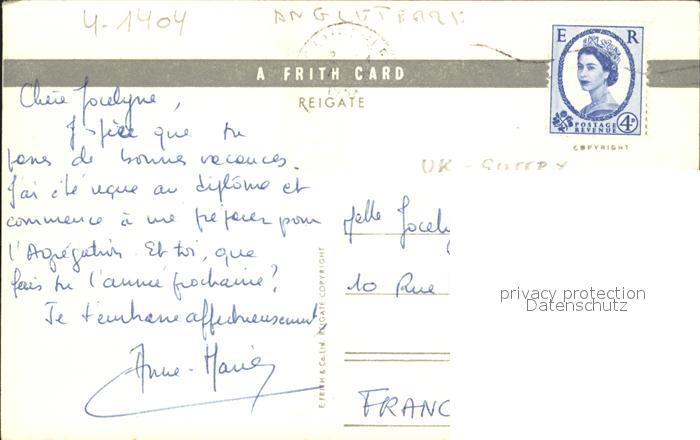 4-1404 ANGLETERRE
E R
POSTAGE
REVENUE 4D
A FRITH CARD
REIGATE
COPYRIGHT
Chère Jocelyne,
J'espère que tu
passes de bonnes vacances.
J'ai été reçue au diplôme et
commence à me préparer pour
l'Agrégation. Et toi, que
fais tu l'année prochaine?
Je t'embrasse affectueusement
Anne-Marie
F. FRITH & Co. Ltd. REIGATE COPYRIGHT
UK -
Melle Jocely
10 Rue
FRANC
privacy protection
Datenschutz